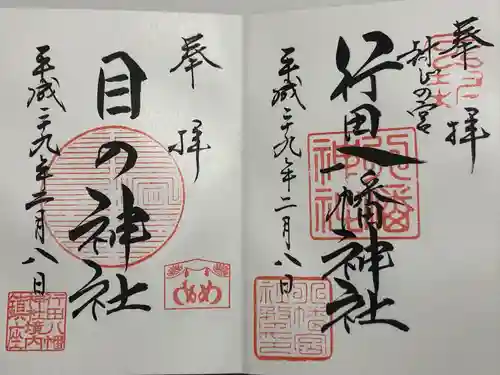 奉拝
封じの宮
行田八幡神社
平成二十九年二月八日
八幡神社
奉拝
目の神社
平成二十九年二月八日
め め
行田八幡
神社境内
鎮座